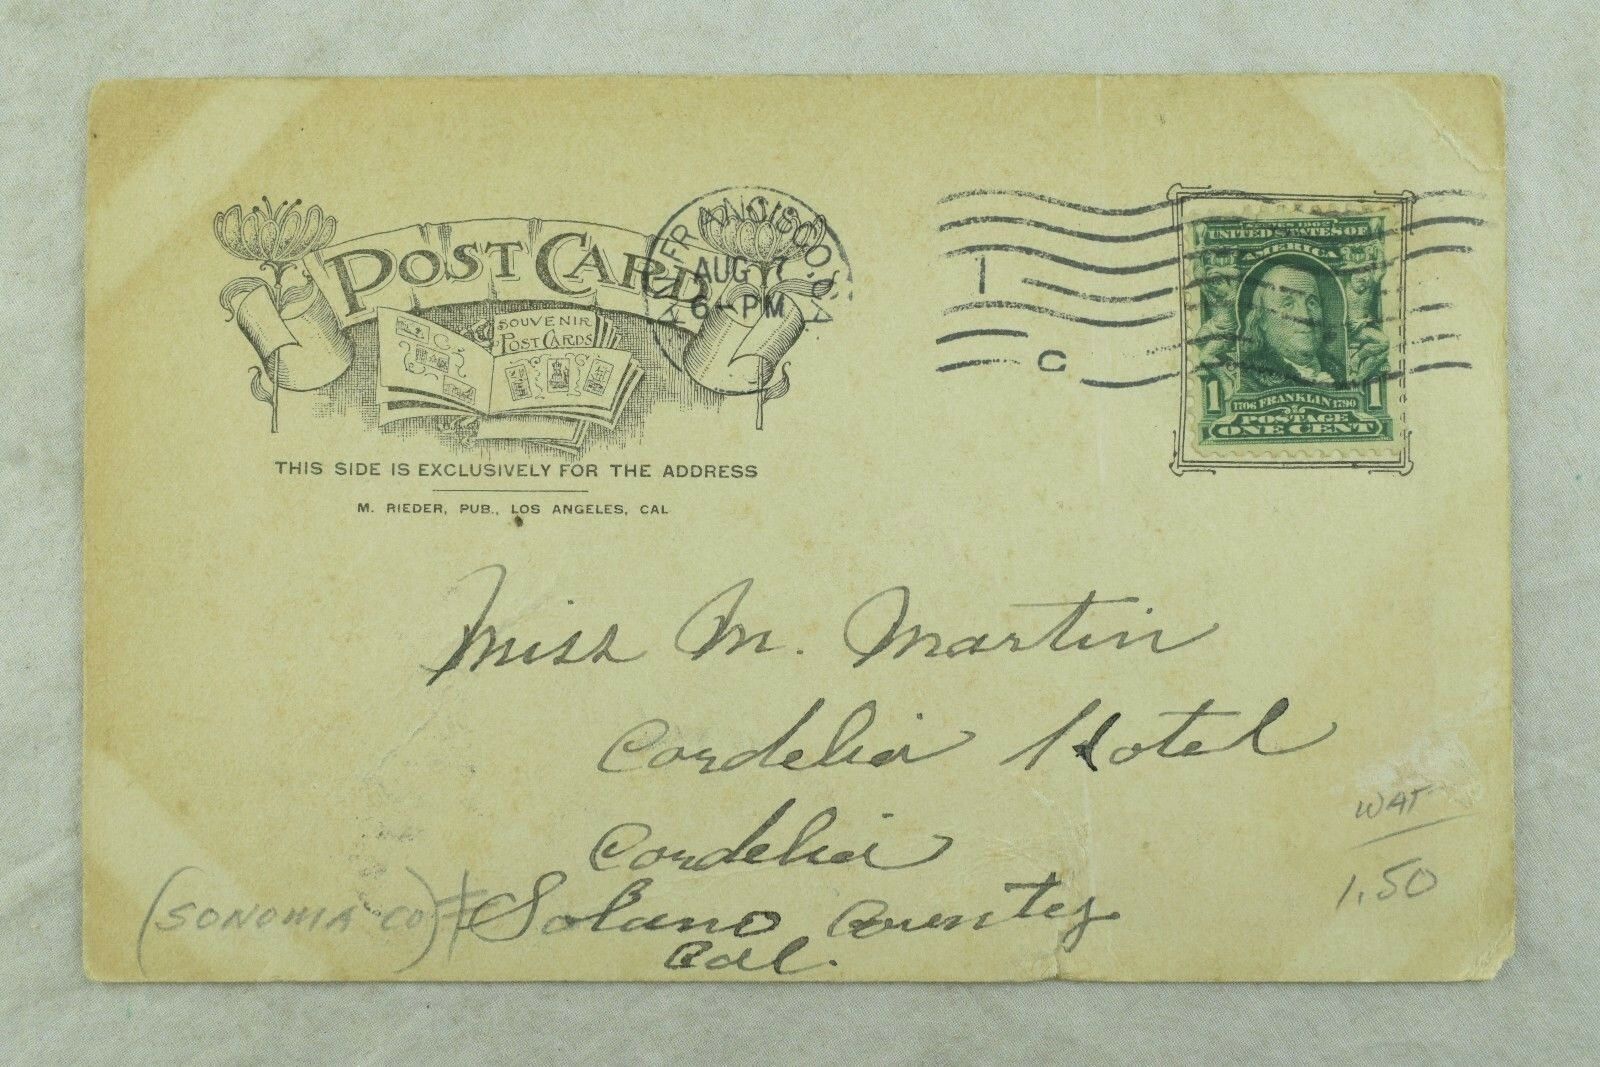 POST CARD
SOUVENIR
POST CARDS
THIS SIDE IS EXCLUSIVELY FOR THE ADDRESS
M. RIEDER, PUB., LOS ANGELES, CAL
FRANCISCO,
AUG 7
6-PM
1
C
SERIES 1902
UNITED STATES OF
AMERICA
1 1706 FRANKLIN 1790 1
POSTAGE
ONE CENT
Miss M. Martin
Cordelia Hotel
Cordelia
Solano County
Cal.
(SONOMA CO)
WAT
1.50